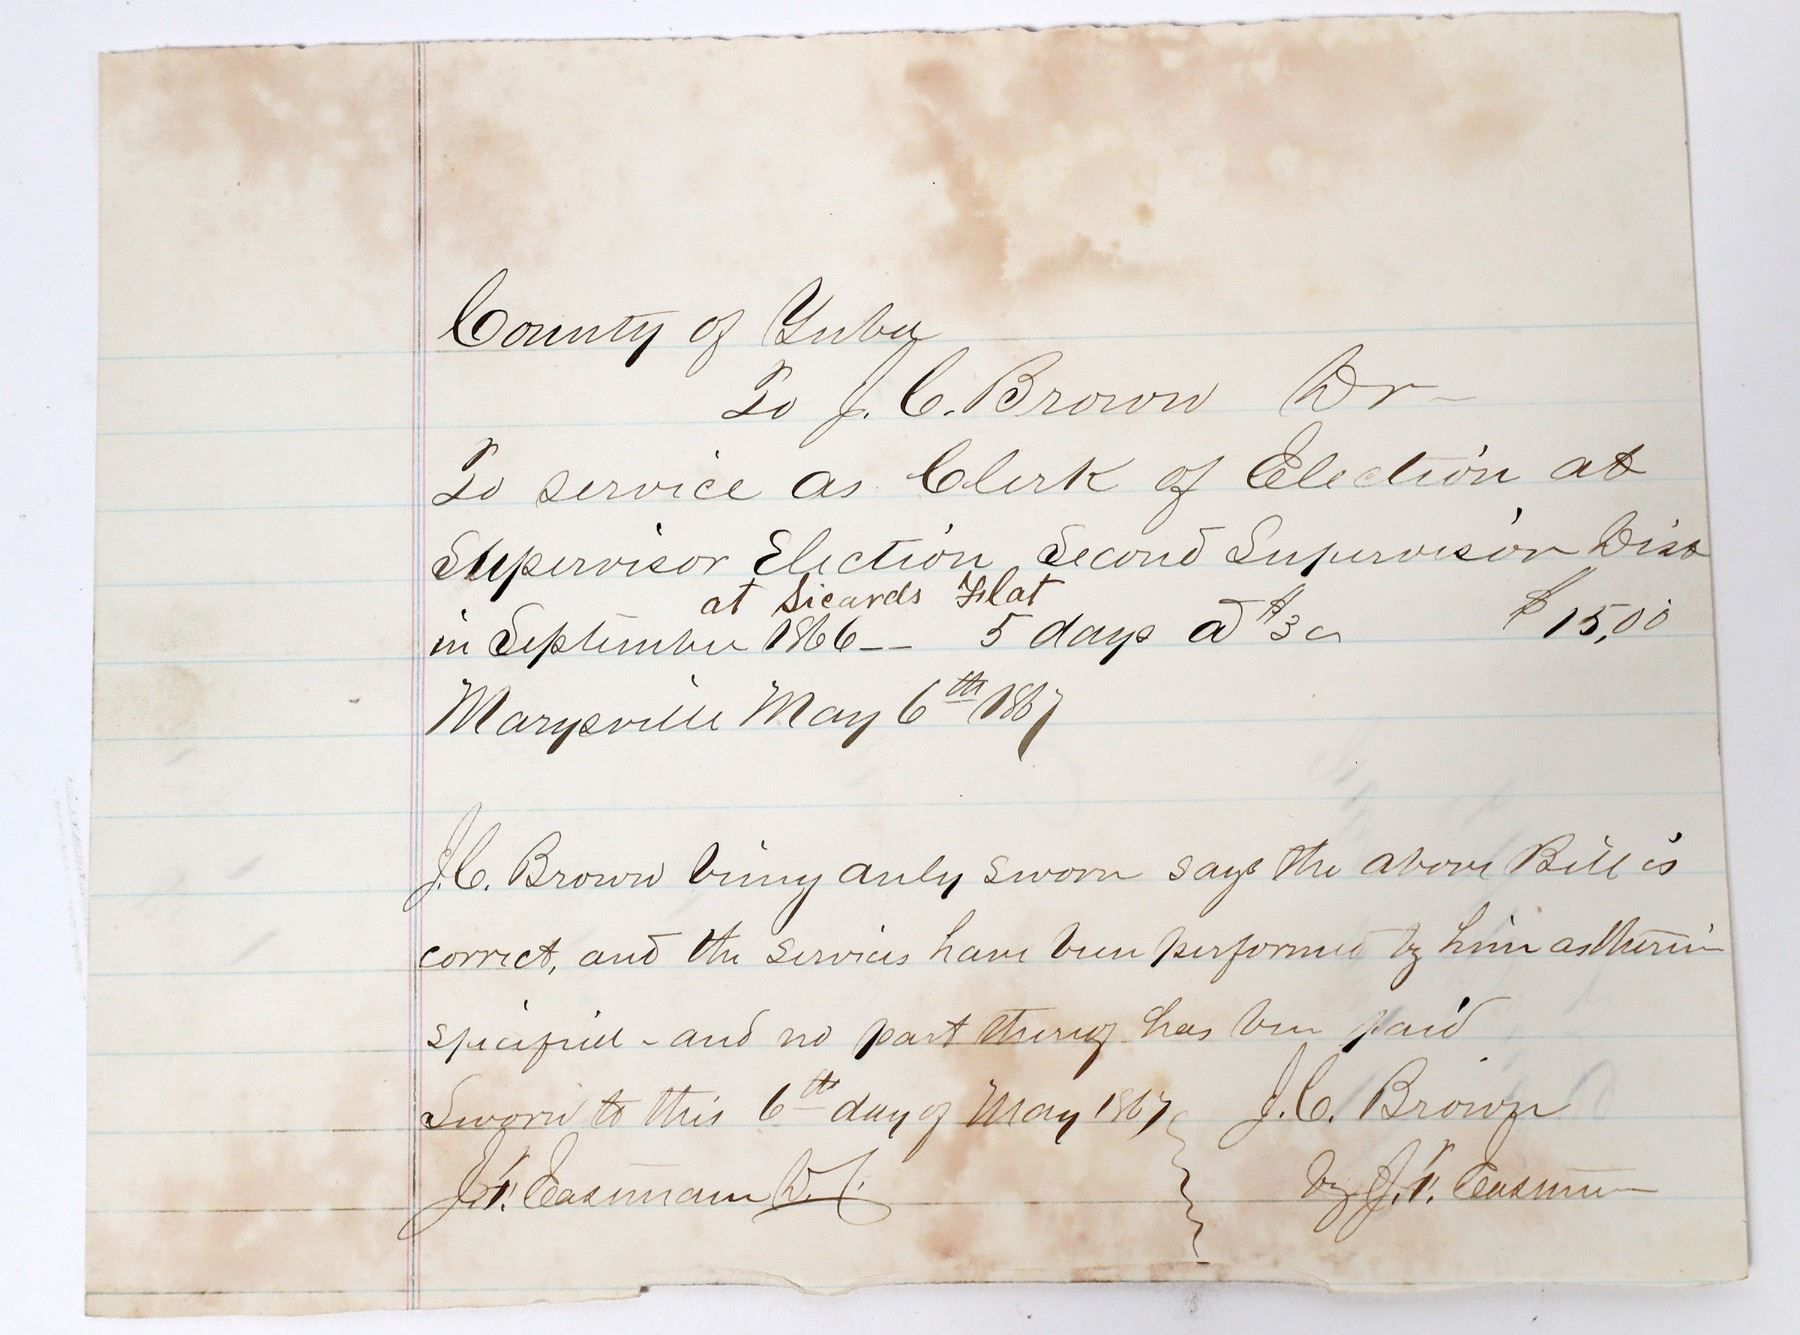 County of Yuba
To J. C. Brown Dr
To service as Clerk of Election at
Supervisor Election Second Supervisor Dist
at Sicards Flat
in September 1866 -- 5 days @ $3 $15,00
Marysville May 6th 1867
J. C. Brown being duly sworn says the above Bill is
correct, and the services have been performed by him as therein
specified - and no part thereof has been paid
Sworn to this 6th day of May 1867 J. C. Brown
Eastman D. C. by Eastman